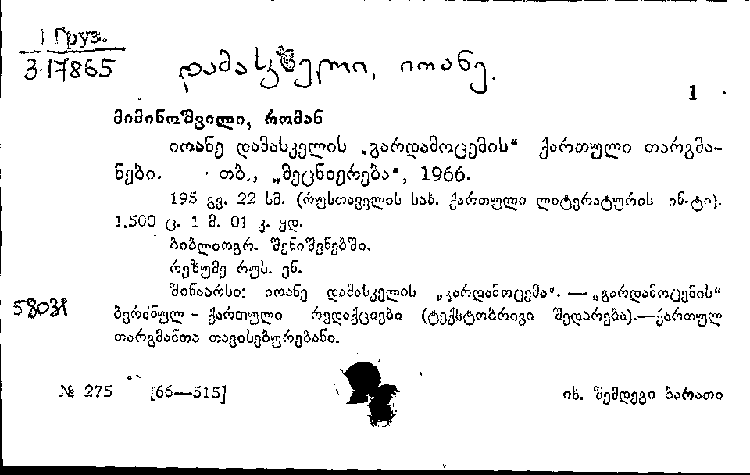 1 Груз.
3·17865
დამასკელი, იოანე.
1
მიმინოშვილი, რომან
იოანე დამასკელის „გარდამოცემის“ ქართული თარგმა-
ნები. თბ., „მეცნიერება“, 1966.
195 გვ. 22 სმ. (რუსთაველის სახ. ქართული ლიტერატურის ინ-ტი).
1.500 ც. 1 მ. 01 კ. ყდ.
ბიბლიოგრ. შენიშვნებში.
რეზუმე რუს. ენ.
შინაარსი: იოანე დამასკელის „გარდამოცემა“. — „გარდამოცემის“
58031
ბერძნულ-ქართული რედაქციები (ტექსტობრივი შედარება).—ქართულ
თარგმანთა თავისებურებანი.
№ 275 [66—515] იხ. შემდეგი ბარათი